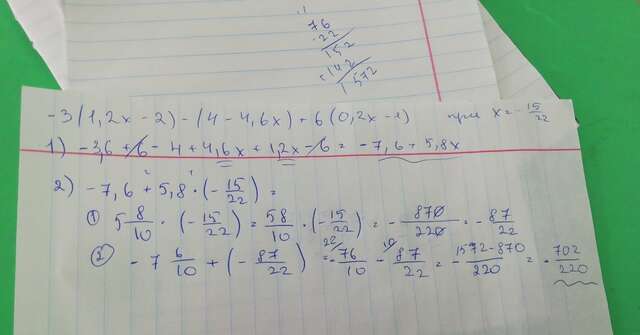 76
22
152
142
1572
-3(1,2x-2)-(4-4,6x)+6(0,2x-1) при x=-15/22
1) -3,6+6-4+4,6x+1,2x-6=-7,6+5,8x
2) -7,6+5,8·(-15/22)=
① 5 8/10 · (-15/22) = 58/10 · (-15/22) = -870/220 = -87/22
② -7 6/10 + (-87/22) = -76/10 - 87/22 = -1572-870/220 = -702/220